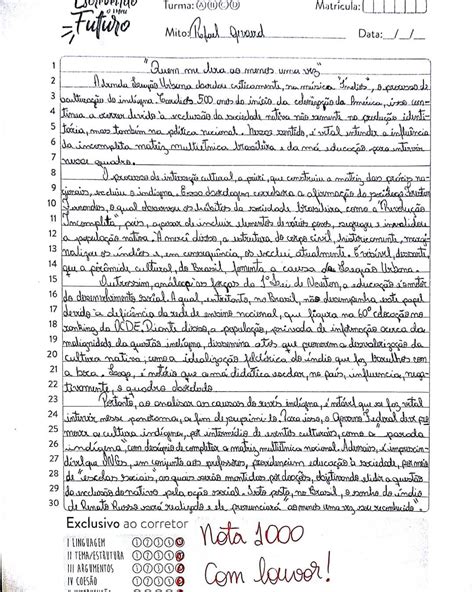 Escrevendo o meu
Futuro
Turma: A B C D
Matrícula:
Mito: Rafael Girard
Data: _/_/_
1 "Quem me dera ao menos uma vez"
2 A banda Legião Urbana aborda criticamente, na música "Índios", o processo de
3 aculturação do indígena. Passados 500 anos do início da colonização da América, isso con-
4 tinua a correr devido à reclusão da sociedade nativa não somente na produção identi-
5 tária, mas também na política nacional. Nesse sentido, é vital entender a influência
6 da incompleta matriz multiétnica brasileira e da má educação para intervir
7 nesse quadro.
8 O processo de interação cultural, a priori, que construiu a matriz das práxis na-
9 cionais, excluiu o indígena. Essa abordagem corrobora a afirmação do sociólogo Florestan
10 Fernandes, o qual descreveu os méritos da sociedade brasileira como a "Revolução
11 Incompleta", pois, apesar de incluir elementos de vários povos, segrega e invalida
12 a população nativa. À mercê disso, a estrutura do corpo civil, historicamente, margi-
13 nalizou os índios e, em consequência, os exclui atualmente. É visível, dessarte,
14 que a pirâmide cultural, do Brasil, fomenta a causa da Legião Urbana.
15 Outrossim, análoga às forças da 1ª Lei de Newton, a educação é motor
16 do desenvolvimento social. A qual, entretanto, no Brasil, não desempenha este papel
17 devido à deficiência da rede de ensino nacional, que figura na 60ª colocação no
18 ranking da OCDE. Diante disso, a população, privada de informação acerca da
19 malignidade da questão indígena, dissemina atos que promovem a desvalorização da
20 cultura nativa, como a idealização folclórica do índio que faz barulhos com
21 a boca. Logo, é notório que a má didática escolar, no país, influencia, nega-
22 tivamente, o quadro abordado.
23 Portanto, ao analisar as causas do revés indígena, é notável que se faz vital
24 intervir nesse panorama, a fim de suprimi-lo. Para isso, o Governo Federal deve pro-
25 mover a cultura indígena, por intermédio de eventos culturais, como a parada
26 indígena" com desígnio de completar a matriz multiétnica nacional. Ademais, é imprescin-
27 dível que ONGs, em conjunto aos professores, providenciem educação à sociedade, por meio
28 de "escolas sociais, as quais serão mantidas por doações, objetivando elidir a questão
29 da exclusão do nativo pela ação social. Isto posto, no Brasil, o sonho do índio
30 de Renato Russo será realizado e ele pronunciará ao menos uma vez seu reconhecido".
Exclusivo ao corretor
I LINGUAGEM
II TEMA/ESTRUTURA
III ARGUMENTOS
IV COESÃO
Nota 1000
Com louvor!